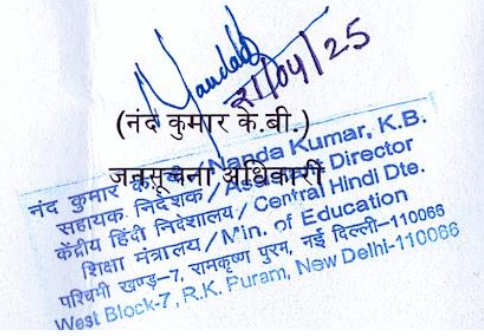 21/04/25
(नंद कुमार के.बी.)
जनसूचना अधिकारी
नंद कुमार के.बी. / Nanda Kumar, K.B.
सहायक निदेशक / Assistant Director
केंद्रीय हिंदी निदेशालय / Central Hindi Dte.
शिक्षा मंत्रालय / Min. of Education
पश्चिमी खण्ड-7, रामकृष्ण पुरम, नई दिल्ली-110066
West Block-7, R.K. Puram, New Delhi-110066